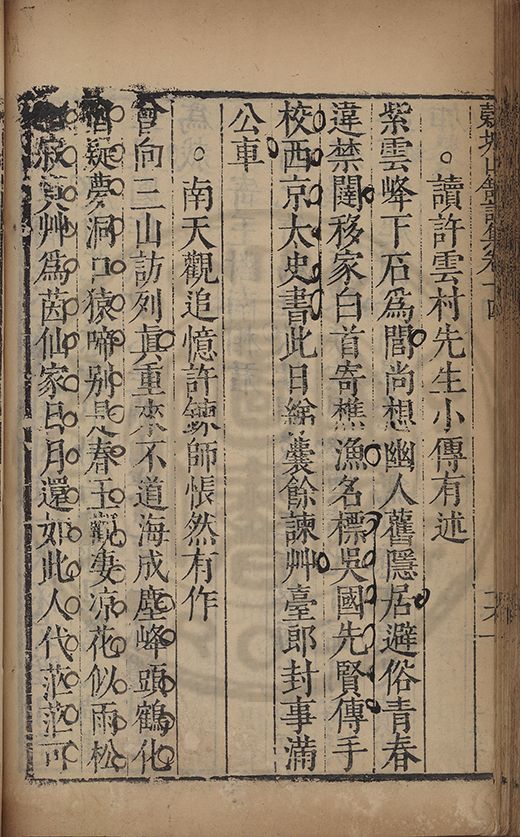 穀城山館詩集卷十四
。讀許雲村先生小傳有述
紫雲峰下石爲閭尚想幽人舊隱居避俗青春
違禁闥移家白首寄樵漁名標吳國先賢傳手
校西京太史書此日綈囊餘諫艸臺郎封事滿
公車
。南天觀追憶許鍊師悵然有作
曾向三山訪列眞重來不道海成塵峰頭鶴化
猶疑夢洞口猿啼别是春玉觀凄凉花似雨松
寂寞艸爲茵仙家日月還如此人代茫茫可